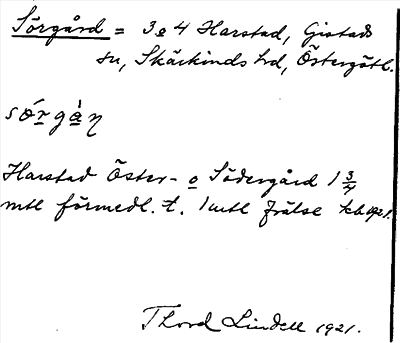 Sörgård = 3 o 4 Harstad, Gistads
sn, Skärkinds hd, Östergötl.
sǿrgàn
Harstad Öster- o Södergård 1 3/4
mtl förmedl. t. 1 mtl Frälse Jeb 1921.
Thord Lindell 1921.